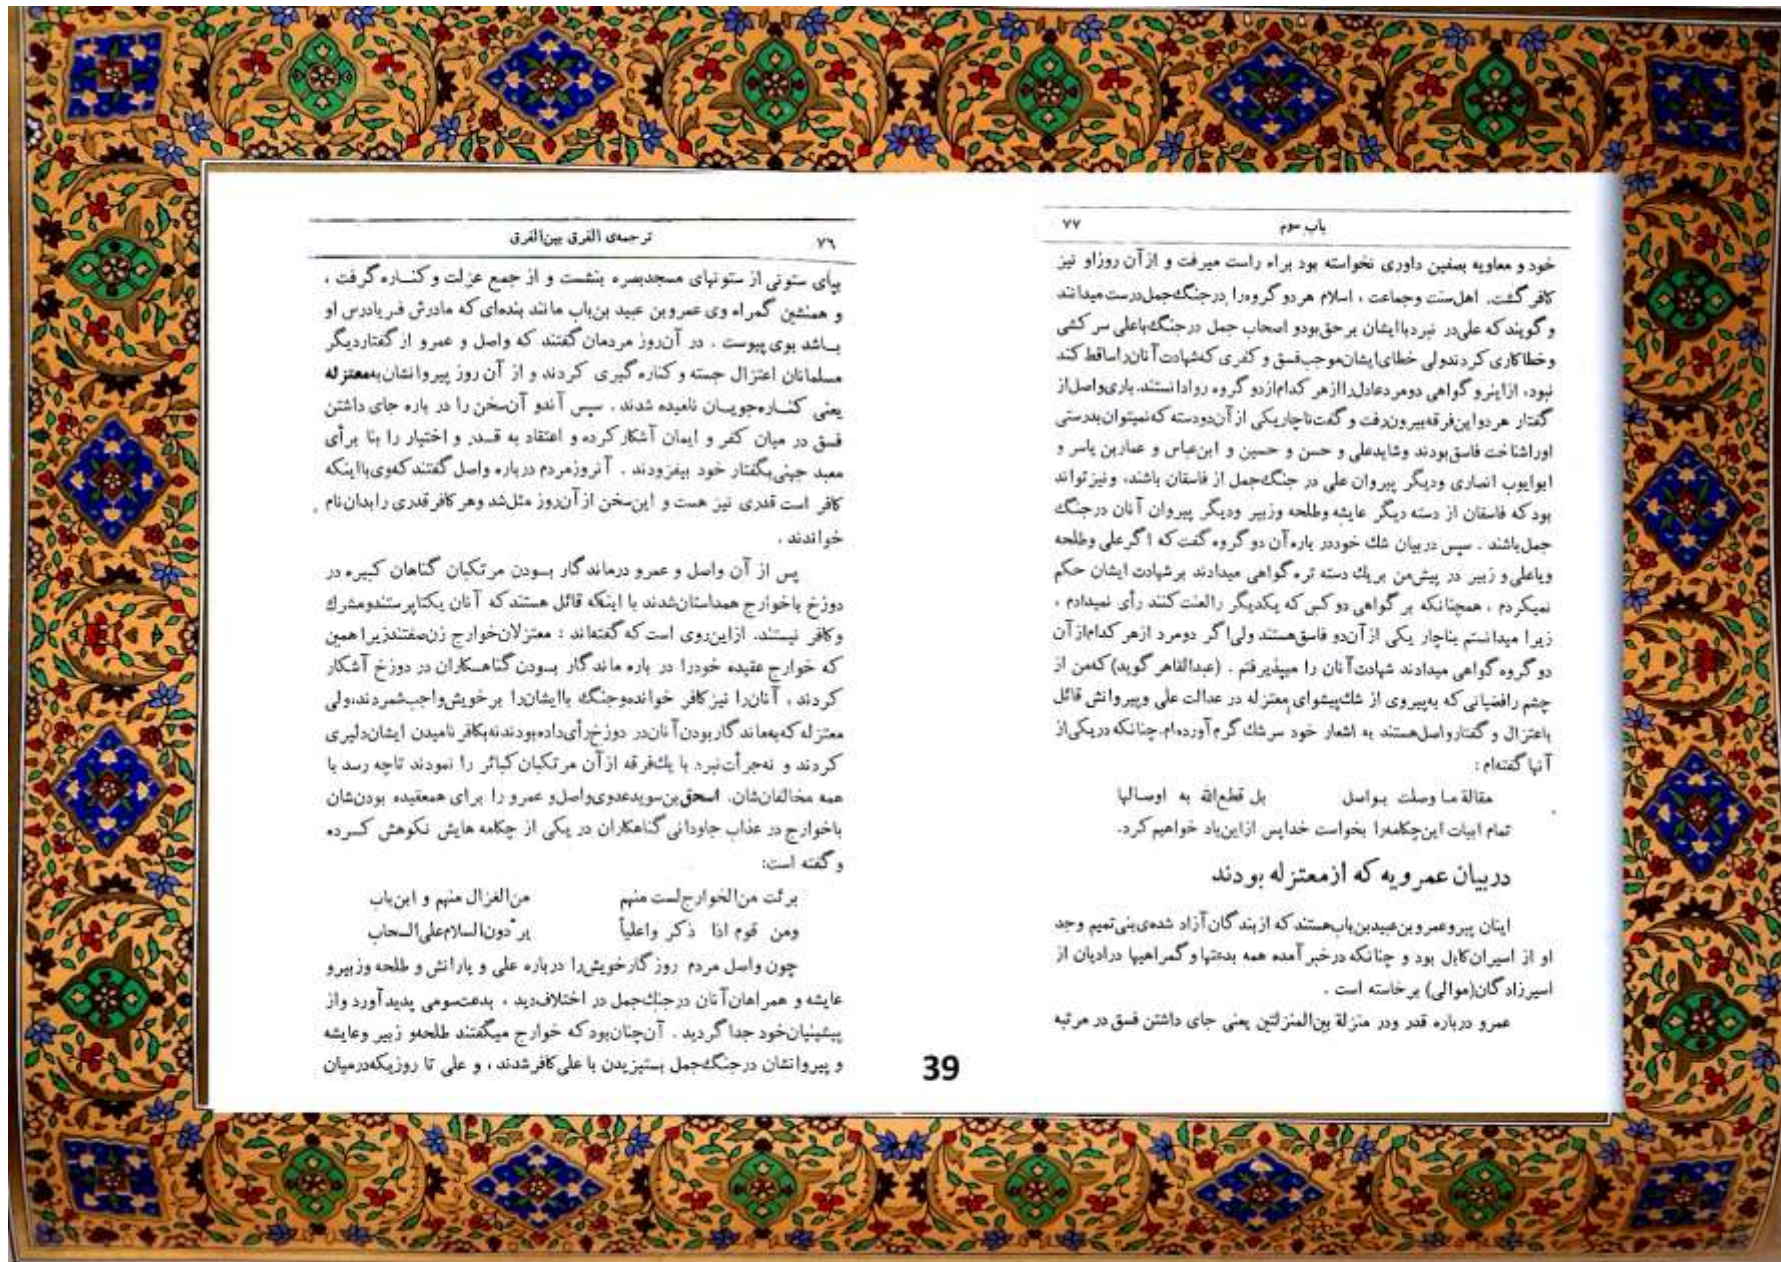 ترجمه‌ی الفرق بین‌الفرق ۷۶
بپای ستونی از ستونهای مسجدبصره بنشست و از جمع عزلت و کنـاره گرفت ،
و همنشین گمراه وی عمروبن عبید بن‌باب مانند بنده‌ای که مادرش فـریادرس او
بـاشد بوی پیوست . در آن‌روز مردمان گفتند که واصل و عمرو از گفتاردیگر
مسلمانان اعتزال جسته و کناره گیری کردند و از آن روز پیروانشان‌به‌معتزله
یعنی کنـاره‌جویـان نامیده شدند . سپس آندو آن‌سخن را در باره جای داشتن
فسق در میان کفر و ایمان آشکار کرده و اعتقاد به قـدر و اختیار را بنا برأی
معبد جهنی‌بگفتار خود بیفزودند . آنروزمردم درباره واصل گفتند که‌وی‌بااینکه
کافر است قدری نیز هست و این‌سخن از آن‌روز مثل‌شد وهر کافر قدری را بدان نام
خواندند .
پس از آن واصل و عمرو درماندگار بـودن مرتکبان گناهان کبیره در
دوزخ باخوارج همداستان‌شدند با اینکه قائل هستند که آنان یکتاپرستندومشرک
وکافر نیستند. ازاین‌روی است که گفته‌اند : معتزلان‌خوارج زن‌صفتندزیرا همین
که خوارج عقیده خودرا در باره ماندگار بـودن گناهسکاران در دوزخ آشکار
کردند ، آنان‌را نیز کافر خوانده‌وجنگ باایشان‌را برخویش‌واجب‌شمردند،ولی
معتزله که‌به‌ماندگار بودن آنان‌در دوزخ‌رأی‌داده‌بودندنه‌بکافر نامیدن ایشان‌دلیری
کردند و نه‌جرأت‌نبرد با یك‌فرقه از آن مرتکبان کبائر را نمودند تاچه رسد با
همه مخالفان‌شان. اسحق‌بن‌سویدعدوی‌واصل‌و عمرو را برای همعقیده بودن‌شان
باخوارج در عذاب جاودانی گناهکاران در یکی از چکامه هایش نکوهش کـرده
و گفته است:
برئت من‌الخوارج‌لست منهم من‌الغزال منهم و ابن‌باب
ومن قوم اذا ذکر واعلیاً یردّون‌السلام‌علی‌السحاب
چون واصل مردم روزگارخویش‌را درباره علی و یارانش و طلحه وزبیرو
عایشه و همراهان‌آنان درجنك‌جمل در اختلاف‌دید ، بدعت‌سومی پدیدآورد واز
پیشینیان‌خود جداگردید . آن‌چنان‌بود که خوارج میگفتند طلحه‌و زبیر وعایشه
و پیروانشان درجنگ‌جمل بستیزیدن با علی کافرشدند ، و علی تا روزیکه‌درمیان
باب سوم ۷۷
خود و معاویه بصفین داوری نخواسته بود براه راست میرفت و از آن روزاو نیز
کافر گشت. اهل‌سنت وجماعت ، اسلام هردو گروه‌را درجنگ‌جمل‌درست‌میدانند
و گویند که علی‌در نبردباایشان برحق‌بودو اصحاب جمل درجنگ‌باعلی سرکشی
وخطاکاری کردندولی خطای‌ایشان‌موجب‌فسق و کفری که‌شهادت آنان‌راساقط کند
نبود، ازاینرو گواهی دومردعادل‌راازهر کدام‌ازدو گروه روادانستند. باری‌واصل‌از
گفتار هردواین‌فرقه‌بیرون‌رفت و گفت‌ناچاریکی از آن‌دودسته که‌نمیتوان‌بدرستی
اوراشناخت فاسق‌بودند وشایدعلی و حسن و حسین و ابن‌عباس و عماربن یاسر و
ابوایوب انصاری ودیگر پیروان علی در جنگ‌جمل از فاسقان باشند، ونیز تواند
بود که فاسقان از دسته دیگر عایشه وطلحه وزبیر ودیگر پیروان آنان درجنگ
جمل‌باشند . سپس دربیان شك خوددر باره‌آن دو گروه گفت که اگرعلی وطلحه
ویاعلی‌و زبیر در پیش‌من بریك دسته تره گواهی میدادند برشهادت ایشان حکم
نمیکردم ، همچنانکه بر گواهی دوکس که یکدیگر رالعنت کنند رأی نمیدادم ،
زیرا میدانستم بناچار یکی از آن‌دو فاسق‌هستند ولی‌اگر دومرد ازهر کدام‌از آن
دو گروه گواهی میدادند شهادت‌آنان را میپذیرفتم . (عبدالقاهر گوید) که‌من از
چشم رافضیانی که به‌پیروی از شك‌پیشوای معتزله در عدالت علی وپیروانش قائل
باعتزال و گفتارواصل‌هستند به اشعار خود سرشك گرم آورده‌ام.چنانکه دریکی‌از
آنها گفته‌ام :
مقالة مـا وصلت بـواصل بل قطع‌الله به اوصـالها
تمام ابیات این‌چکامه‌را بخواست خداپس ازاین‌یاد خواهیم کرد.
دربیان عمرویه که ازمعتزله بودند
اینان پیروعمروبن‌عبیدبن‌باب‌هستند که ازبندگان‌آزاد شده‌ی‌بنی‌تمیم وجد
او از اسیران‌کابل بود و چنانکه درخبر آمده همه بدعتها و گمراهیها درادیان از
اسیرزادگان(موالی) برخاسته است .
عمرو درباره قدر ودر منزلة بین‌المنزلتین یعنی جای داشتن فسق در مرتبه
39